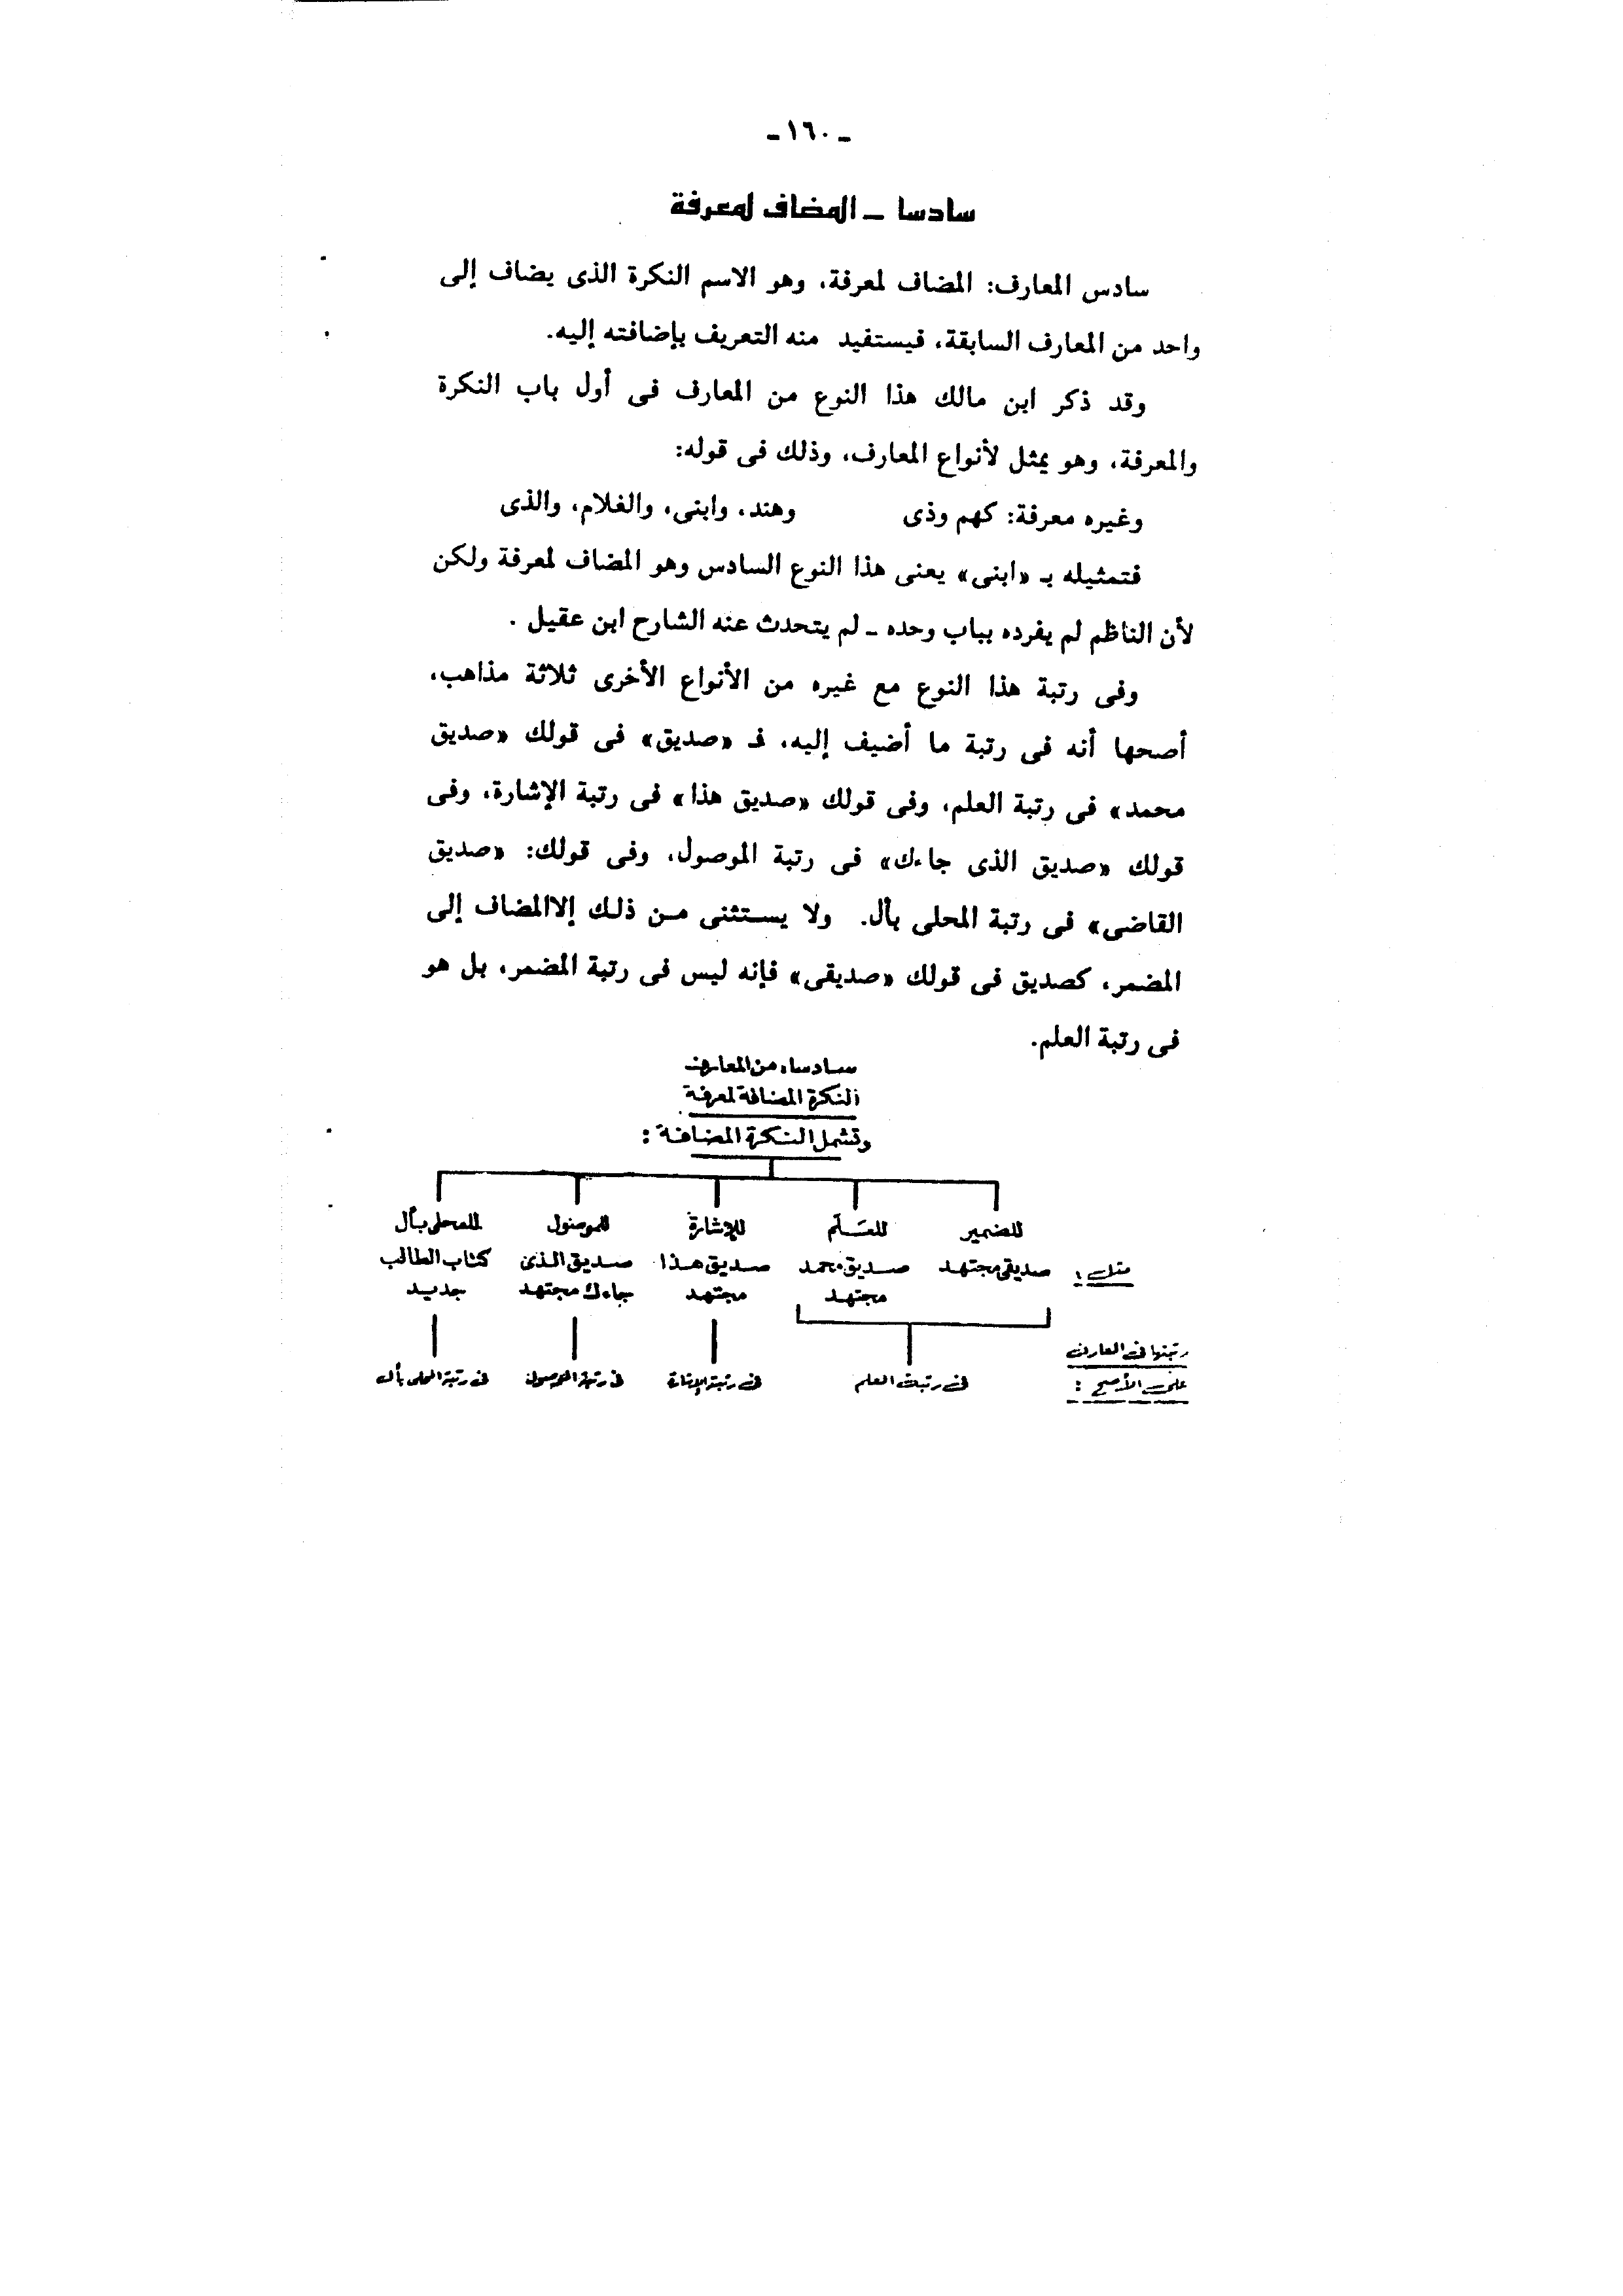 ـ ١٦٠ ـ
سادسا ـ المضاف لمعرفة
سادس المعارف: المضاف لمعرفة، وهو الاسم النكرة الذى يضاف إلى
واحد من المعارف السابقة، فيستفيد منه التعريف بإضافته إليه.
وقد ذكر ابن مالك هذا النوع من المعارف فى أول باب النكرة
والمعرفة، وهو يمثل لأنواع المعارف، وذلك فى قوله:
وغيره معرفة: كهم وذى وهند، وابنى، والغلام، والذى
فتمثيله بـ «ابنى» يعنى هذا النوع السادس وهو المضاف لمعرفة ولكن
لأن الناظم لم يفرده بباب وحده ـ لم يتحدث عنه الشارح ابن عقيل .
وفى رتبة هذا النوع مع غيره من الأنواع الأخرى ثلاثة مذاهب،
أصحها أنه فى رتبة ما أضيف إليه، فـ «صديق» فى قولك «صديق
محمد» فى رتبة العلم، وفى قولك «صديق هذا» فى رتبة الإشارة، وفى
قولك «صديق الذى جاءك» فى رتبة الموصول، وفى قولك: «صديق
القاضى» فى رتبة المحلى بأل. ولا يستثنى من ذلك إلاالمضاف إلى
المضمر، كصديق فى قولك «صديقى» فإنه ليس فى رتبة المضمر، بل هو
فى رتبة العلم.
سادسا، من المعارف
النكرة المضافة لمعرفة
وتشمل النكرة المضافة :
للضمير للعَلَم للإشارة للموصول للمحلى بأل
مثل : صديقى مجتهد صديق محمد صديق هذا صديق الذى كتاب الطالب
مجتهد مجتهد جاءك مجتهد جديد
رتبتها فى المعارف
على الأصح : فى رتبة العلم فى رتبة الإشارة فى رتبة الموصول فى رتبة المحلى بأل